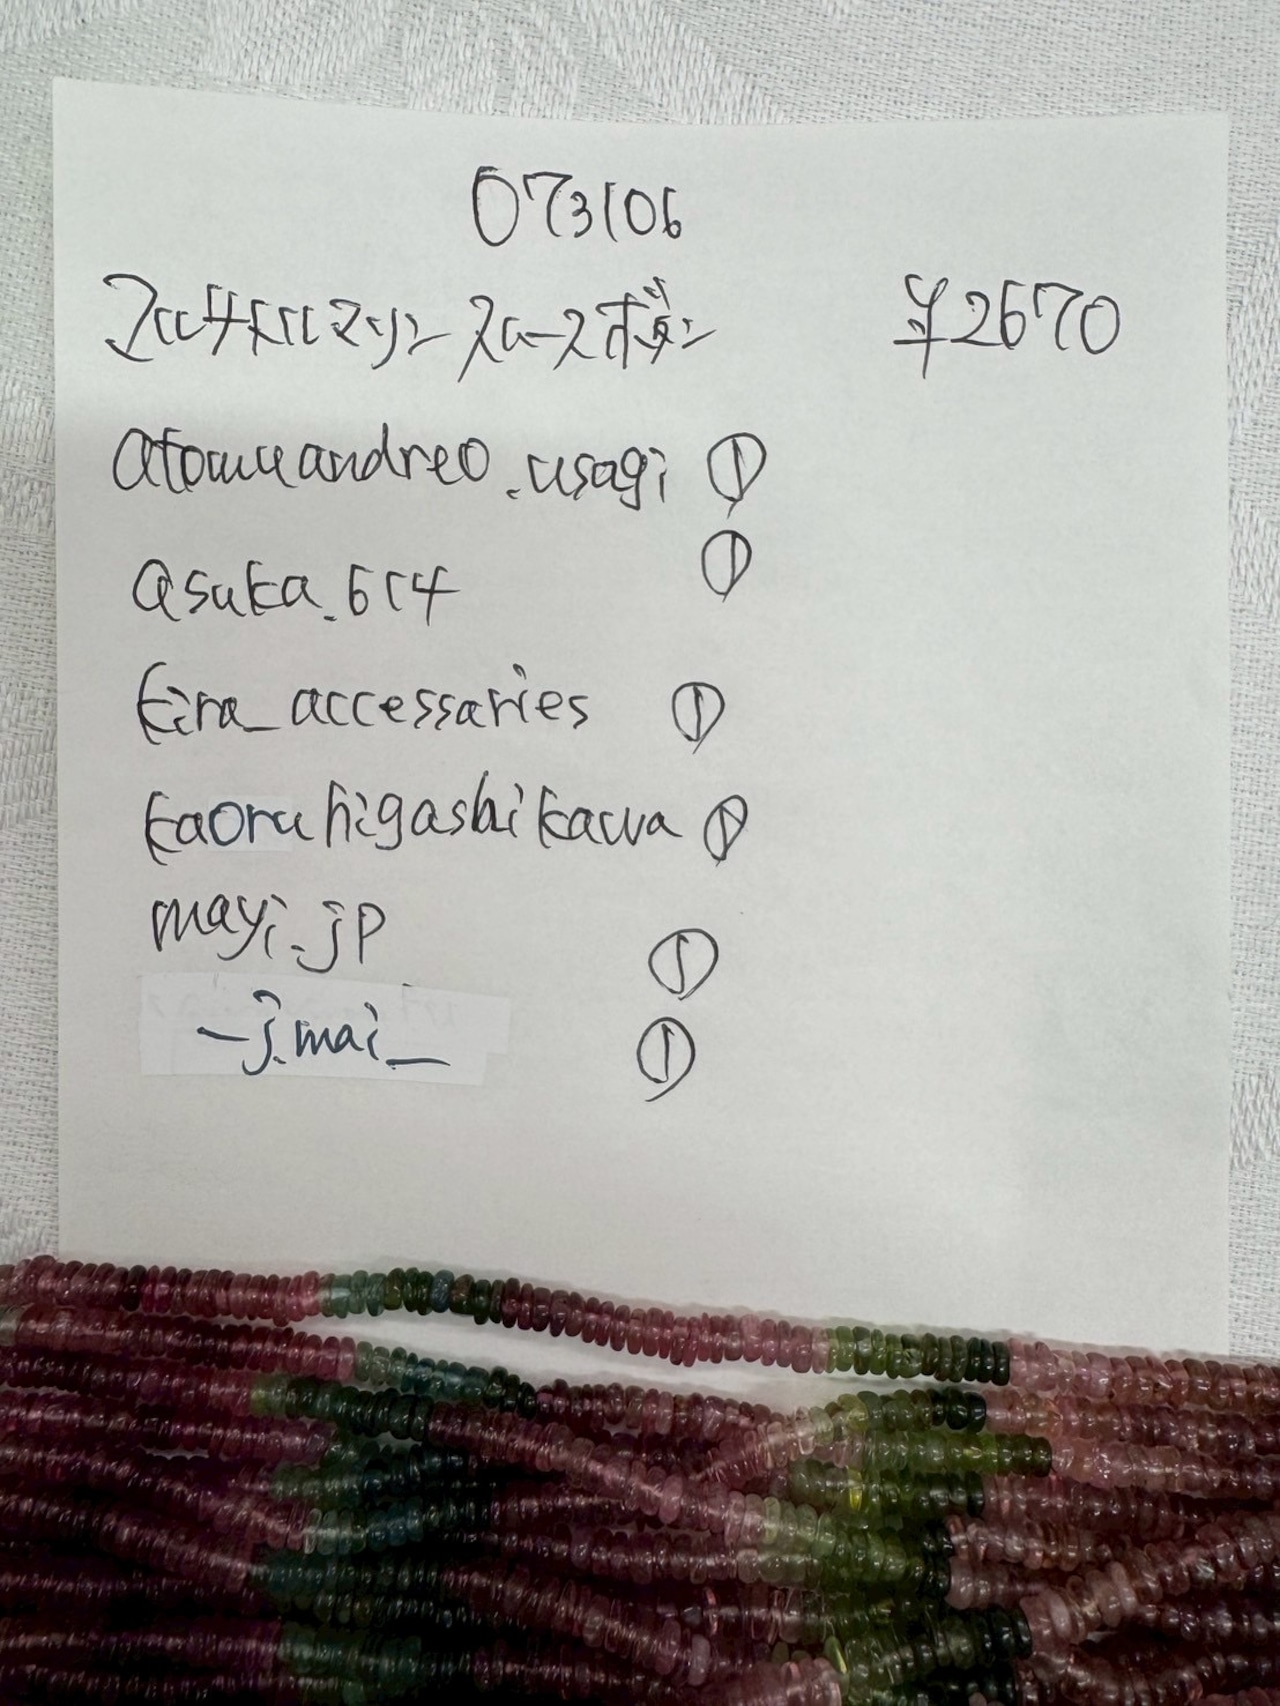 073106
マルチトルマリン スムースボタン ¥2670
atomuandreo.usagi ①
asuka.614 ①
kira_accessaries ①
kaoruhigashikawa ①
mayi.jp ①
_j.mai_ ①